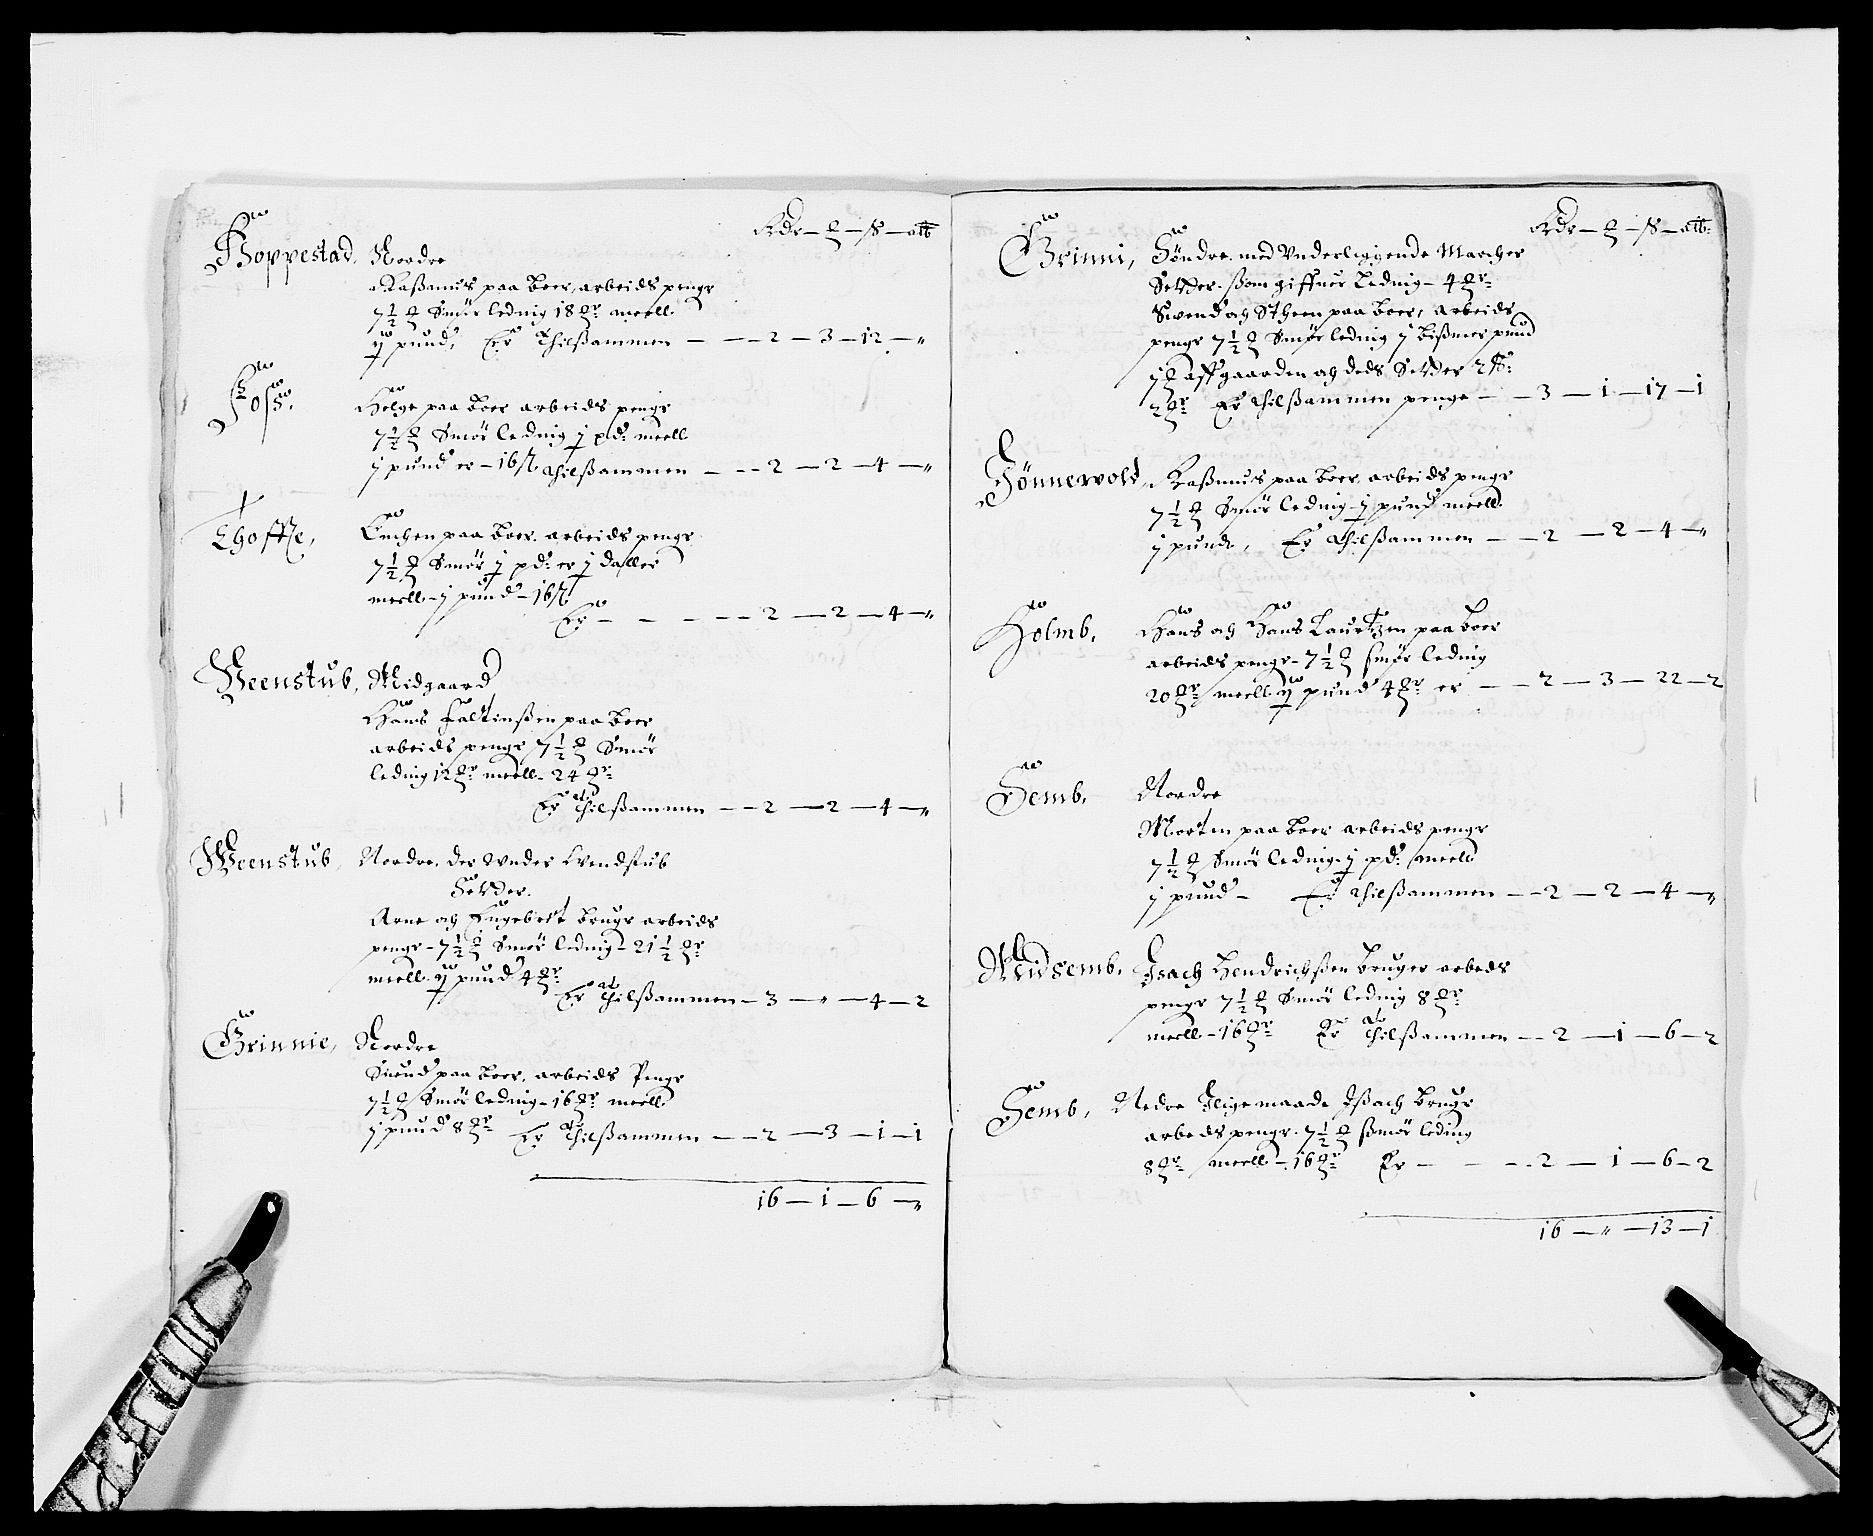 Rdr — ort — ß — alb
Hoppestad. Nordre
Raßmus paa boer, arbeids penge
7½ ort Smör leding 18 mrk meell
ij pund, Er Thilsammen — — 2 — 3 — 12 — „
Foss. Helge paa boer arbeids penge
7½ ort Smör leding j pd: meell
j pund er — 16 ß Thilsammen — — 2 — 2 — 4 — „
Thoffte, paa boer. arbeids penge
7½ ort Smör j pd: er j daller
meell — j pund — 16 ß
Er — — — — 2 — 2 — 4 — „
Veenstub, Midgaard
Hans Faltinßen paa boer
arbeids penge 7½ ort Smör
leding 12 mrk meell — 24 mrk
Er Thilsammen — — 2 — 2 — 4 — „
Weenstub, Nordre. der under
Arne og Engebret brugr arbeids
penge — 7½ ort Smör leding — 21½ mrk
meell ij pund 4 mrk
Er Thilsammen — 3 — „ — 4 — 2
Grinnie, Nordre
Suend paa boer, arbeids Penge
7½ ort Smör leding — 16 mrk meell
j pund 8 mrk Er Thilsammen — — 2 — 3 — 1 — 1
16 — 1 — 6 — „
Rdr — ort — ß — alb:
Grinni, Söndre. med Underliggende Marcher
Sætder. ßom giffuer Leding — 4 mrk
Swend og Steen paa boer, arbeids
penge 7½ ort Smör leding j bißmer pund
j ort aff gaarden og deds Sætder 2 ß:
2 mrk Er Thilsammen penge — — 3 — 1 — 17 — 1
Jönnevold, Raßmus paa boer arbeids penge
7½ ort Smör leding — j pund meell
j pund, Er Thilsammen — — 2 — 2 — 4 — „
Holmb, Hans og Hans Laurtzen paa boer
arbeids penge — 7½ ort smör leding
20 mrk meell ij pund 4 mrk er — — 2 — 3 — 22 — 2
Semb, Nordre
Morten paa boer arbeids penge
7½ ort Smör leding. j pd: meell
j pund — Er Thilsammen — — 2 — 2 — 4 — „
Midsemb, Isach Hendrichßen bruger arbeds
penge 7½ ort Smör leding 8 mrk
meell — 16 mrk Er Thilsammen — — 2 — 1 — 6 — 2
Semb, Nedre Iligemaade Ißach brugr
arbeds penge. 7½ ort ßmör leding
8 mrk meell — 16 mrk Er — — — 2 — 1 — 6 — 2
16 — „ — 13 — 1